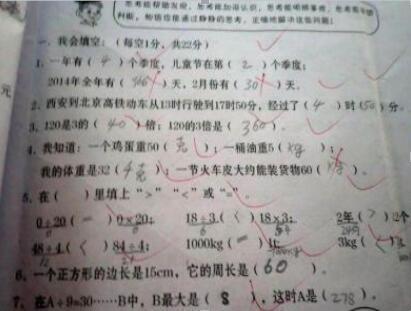 思考能帮助发现，思考能加深认识，思考能明辨事理，思考能
判断，知道你能通过静静的思考，正确地解决这些问题！
元
一、我会填空：（每空1分，共22分）
1. 一年有（ 4 ）个季度，儿童节在第（ 2 ）个季度；
2014年全年有（ 366 ）天，2月份有（ 30 ）天。
2. 西安到北京高铁动车从13时行驶到17时50分，经过了（ 4 ）时（50）分。
3. 120是3的（ 40 ）倍；120的3倍是（ 360 ）。
4. 我知道：一个鸡蛋重50（ 克 ）；一桶油重5（ kg ）；
我的体重是32（ 千克 ）；一节火车皮大约能装货物60（ kg ）。
5. 在（ ）里填上“>”“<”或“=”。
0÷20（ = ）0×20； 18÷3（ < ）18×3； 2年（ > ）2个
0 0 6 54
48÷4（ < ）84÷4； 1000kg（ = ）1t 3kg（ < ）
12 21 1000kg
6. 一个正方形的边长是15cm，它的周长是（ 60 ）。
7. 在A÷9=30……B中，B最大是（ 8 ），这时A是（ 278 ）。